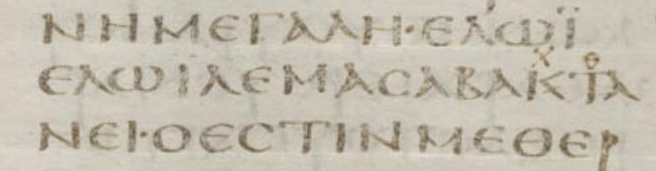 ΝΗΜΕΓΑΛΗ·ΕΛΩΪ
ΕΛΩΙΛΕΜΑΣΑΒΑΚΤΑ
ΝΕΙ·ΟΕΣΤΙΝΜΕΘΕΡ